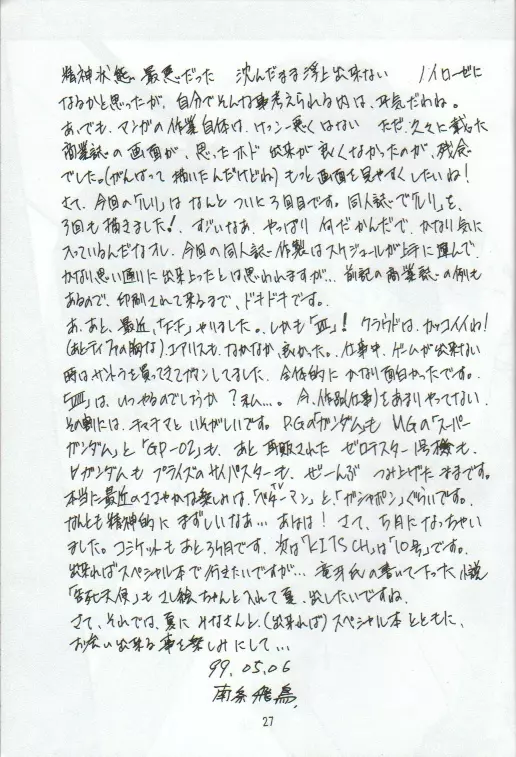 精神状態 最悪だった 沈んだまま浮上出来ない ノイローゼに
なるかと思ったが、自分でそんな事考えられる内は、平気だわね。
あ、でも、マンガの作業自体は、けっこー悪くはない ただ、久々に載った
商業誌の画面が、思ったホド 出来が良くなかったのが、残念
でした。(がんばって 描いたんだけどね) もっと画面を見やすくしたいね!
さて、今回の「ルリ」は なんと ついに3回目です。同人誌で「ルリ」を、
3回も描きました! すごいなあ、やっぱり 何だかんだで、かなり気に
入っているんだなオレ、今回の同人誌 作製はスケジュールが上手に運んで、
かなり思い通りに出来上ったとは思われますが… 前記の商業誌の例も
あるので、印刷されて来るまで、ドキドキです。
あ、あと、最近、「F.F」やりました。しかも「Ⅶ」! クラウドは、カッコイイね!
(あとティファの胸な) エアリスも、なかなか、良かった。仕事中、ゲームが出来ない
時はサントラを買ってきてガマンしてました。全体的に かなり面白かったです。
「Ⅷ」は、いつやるのでしょうか? 私…。 今、作品(仕事)をあまりやってない、
その割には、チャチャと いそがしいです。P.Gの「ガンダム」も MGの「スーパー
ガンダム」と「GP-02」も、あと 再販された ゼロテスター1号機も、
Vガンダムも プライズのサイバスターも、ぜーんぶ つみ上げたままです。
本当に最近のささやかな楽しみは、TV「ベターマン」と、「ガシャポン」ぐらいです。
なんとも精神的に まずしいなあ… あはは! さて、5月になっちゃい
ました。コミケットもあと3ヶ月です。次は「KITSCH」は「10号」です。
出来ればスペシャル本で行きたいですが… 竜牙氏の書いて下った小説
「告死天使」も さし絵ちゃんと入れて夏、出したいですね、
さて、それでは、夏に みなさんと、(出来れば) スペシャル本 とともに、
お会い出来る事を楽しみにして…
99.05.06
南条飛鳥
27